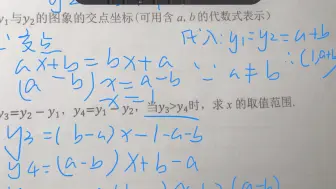 y₁与y₂的图象的交点坐标(可用含 a, b 的代数式表示)
∵ 交点
代入: y₁=y₂=a+b
ax+b=bx+a
(a-b)x=a-b ∵ a≠b ∴(1,a+b
x=1
y₃=y₂-y₁, y₄=y₁-y₂, 当y₃>y₄时, 求 x 的取值范围.
y₃=(b-a)x-1-a-b
y₄=(a-b)x+b-a